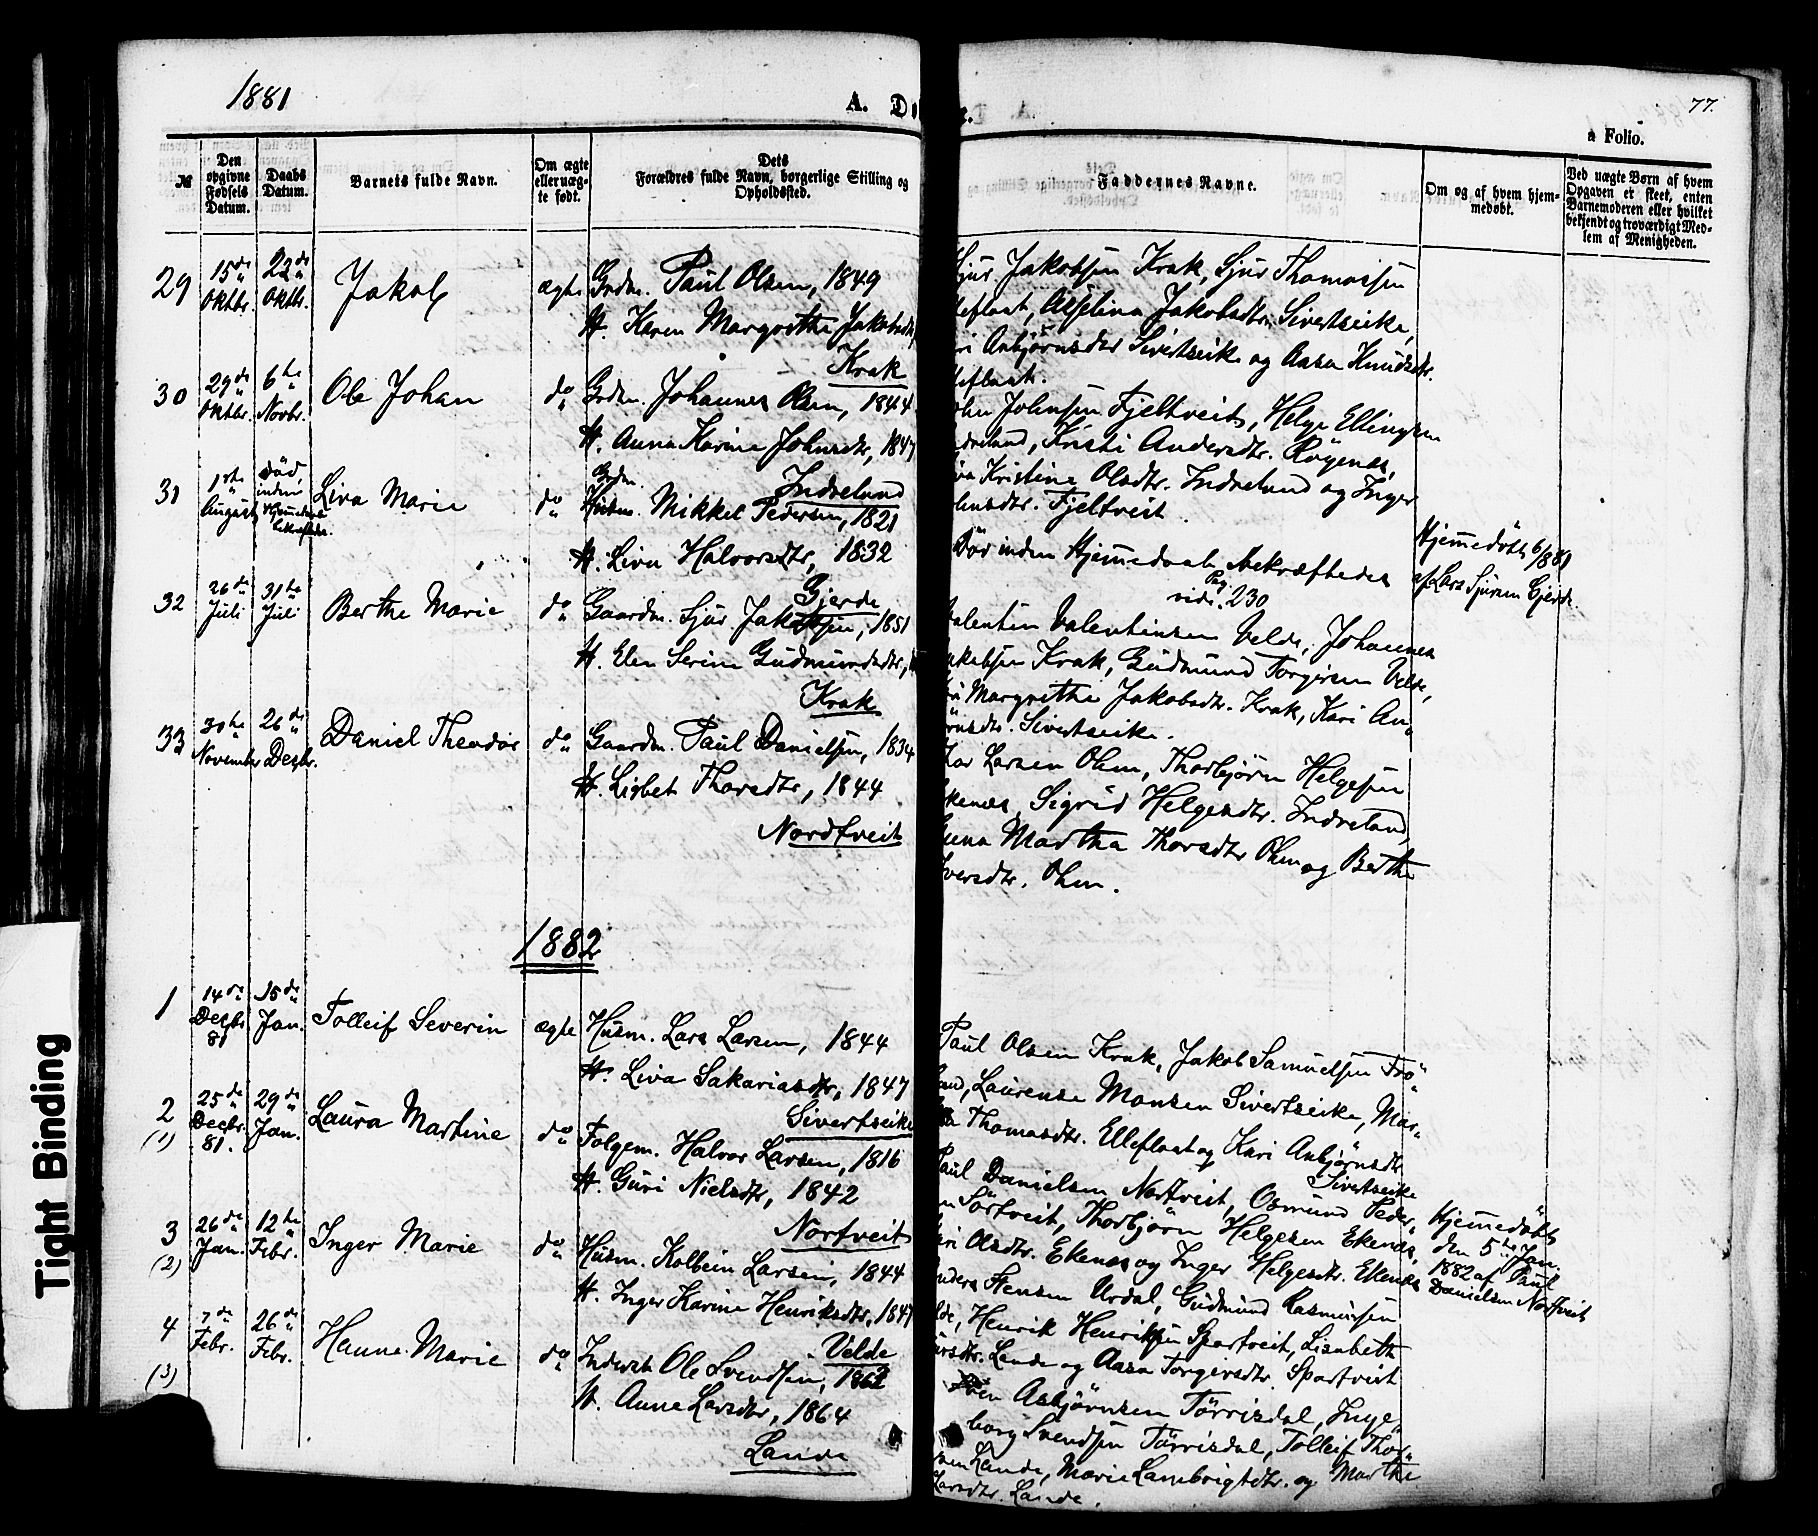 1881
A. D
77.
a Folio.
№
Den opgivne Fødsels Datum.
Daabs Datum.
Barnets fulde Navn.
Om ægte eller uæg- te født.
Dets Forældres fulde Navn, borgerlige Stilling og Opholdssted.
Faddernes Navne.
Om og af hvem hjem- medøbt.
Ved uægte Børn af hvem Opgaven er skeet, enten Barnemoderen eller hvilket bekjendt og troværdigt Med- lem af Menigheden.
29 15de Oktbr. 23de Oktbr. Jakob ægte Grdm. Paul Olsen, 1849
H. Karen Margrethe Jakobsdtr,
Krak
Sjur Jakobsen Krak, Sjur Thomassen
Elleflaat, Jakobsdtr. Sivertseike,
Anbjørnsdtr Sivertseik og Aasa Knudsdtr.
Elleflaat.
30 29de Oktbr. 6te Novbr. Ole Johan do Grdm. Johannes Olsen, 1844.
H. Anna Karine Johnsdtr, 1847
Indreland
John Johnsen Fjeltveit, Helge Ellingsen
Indreland, Kristi Andersdtr. Røgenes,
Kristine Olsdtr. Indreland og Inger
Fjeltveit.
31 1ste August død inden Hjemmedaab bekræftedes. Liva Marie do Grdm. Mikkel Pedersen, 1821
H. Liva Halvorsdtr, 1832
Gjerde
Død inden Hjemmedaab bekræftedes
vide. Pag. 230
Hjemmedøbt 6/8 81
af Lars Sjursen Gjerde
32 26de Juli 31te Juli Berthe Marie do Gaardm. Sjur Jakobsen, 1851
H. Elen Serine Gudmundsdtr,
Krak
Valentin Valentinsen Velde, Johannes
Jakobsen Krak, Gudmund Torgersen Velde,
Margrethe Jakobsdtr. Krak, Kari An-
Sivertseike.
33 30te November 26de Desbr. Daniel Theodor do Gaardm. Paul Danielsen, 1834
H. Lisbet Thorsdtr, 1844
Nordtveit
Thor Larsen Ohm, Thorbjørn Helgesen
Ekenes, Sigrid Helgesdtr. Indreland,
Martha Thorsdtr Ohm og Berthe
Iversdtr. Ohm.
1882
1 14de Desbr 81 15de Jan. Tolleif Severin ægte Husm. Lars Larsen, 1844
H. Liva Sakariasdtr, 1847
Sivertseike
Paul Olsen Krak, Jakob Samuelsen Frø-
land, Laurense Monsen Sivertseike, Mar-
Thomasdtr. Elleflaat og Kari Anbjørnsdtr
Sivertseike
2 (1) 25de Desbr. 81. 29de Jan. Laura Martine do Folgem. Halvor Larsen, 1816
H. Guri Nielsdtr, 1842
Nortveit
Paul Danielsen Nortveit, Osmund Peder-
Sørtveit, Thorbjørn Helgesen Ekenes,
Olsdtr. Ekenes og Inger Helgesdtr. Ekenes
Hjemmedøbt
den 5te Jan.
1882 af Paul
Danielsen Nortveit
3 (2) 26de Jan. 12te Febr. Inger Marie do Husm. Kolbein Larsen, 1844
H. Inger Karine Henriksdtr, 1847
Velde
Anders Stensen Urdal, Gudmund Rasmussen
Velde, Henrik Henriksen Spartveit, Lisabeth
Lende og Aasa Torgersdtr. Spartveit
4 (3) 7de Febr. 26de Febr. Hanna Marie do Inderst Ole Svendsen, 1862
H. Anna Larsdtr, 1864
Lande
Asbjørnsen Tørrisdal, Inge-
borg Svendsen Tørrisdal, Tolleif Thor-
Lande, Marie Lambrigtdtr. og Marthe
Larsdtr. Lande.
Tight Binding